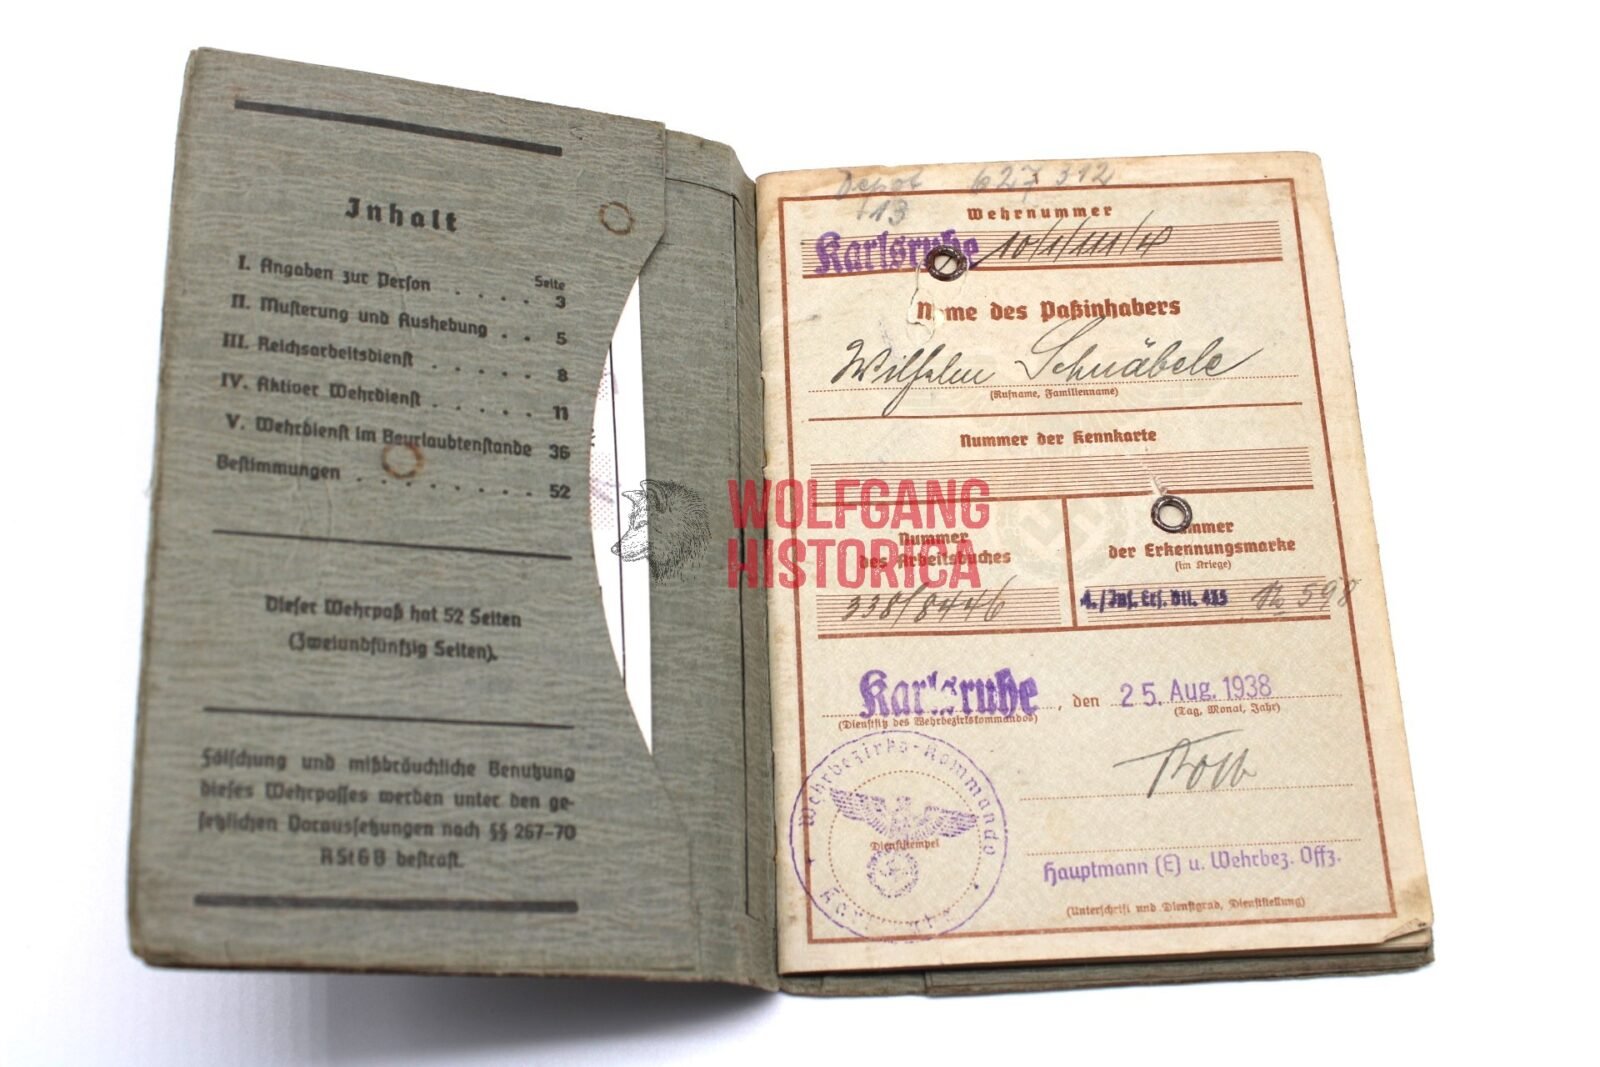 Inhalt
Seite
I. Angaben zur Person . . . . 3
II. Musterung und Aushebung . . 5
III. Reichsarbeitsdienst . . . . . 8
IV. Aktiver Wehrdienst . . . . . 11
V. Wehrdienst im Beurlaubtenstande 36
Bestimmungen . . . . . . . . 52
Dieser Wehrpaß hat 52 Seiten
(Zweiundfünfzig Seiten).
Fälschung und mißbräuchliche Benutzung
dieses Wehrpasses werden unter den ge-
setzlichen Voraussetzungen nach §§ 267–70
RStGB bestraft.
Depot 627 312
13
Wehrnummer
Karlsruhe 10/1/111/4
Name des Paßinhabers
Wilhelm Schnäbele
(Rufname, Familienname)
Nummer der Kennkarte
Nummer
des Arbeitsbuches
338/8446
Nummer
der Erkennungsmarke
(im Kriege)
4./Inf. Ers. Btl. 435 No 598
Karlsruhe, den 25. Aug. 1938
(Dienstsitz des Wehrbezirkskommandos) (Tag, Monat, Jahr)
Wehrbezirks-Kommando
Dienststempel
Karlsruhe
Kolb
Hauptmann (E) u. Wehrbez. Offz.
(Unterschrift und Dienstgrad, Dienststellung)
WOLFGANG
HISTORICA